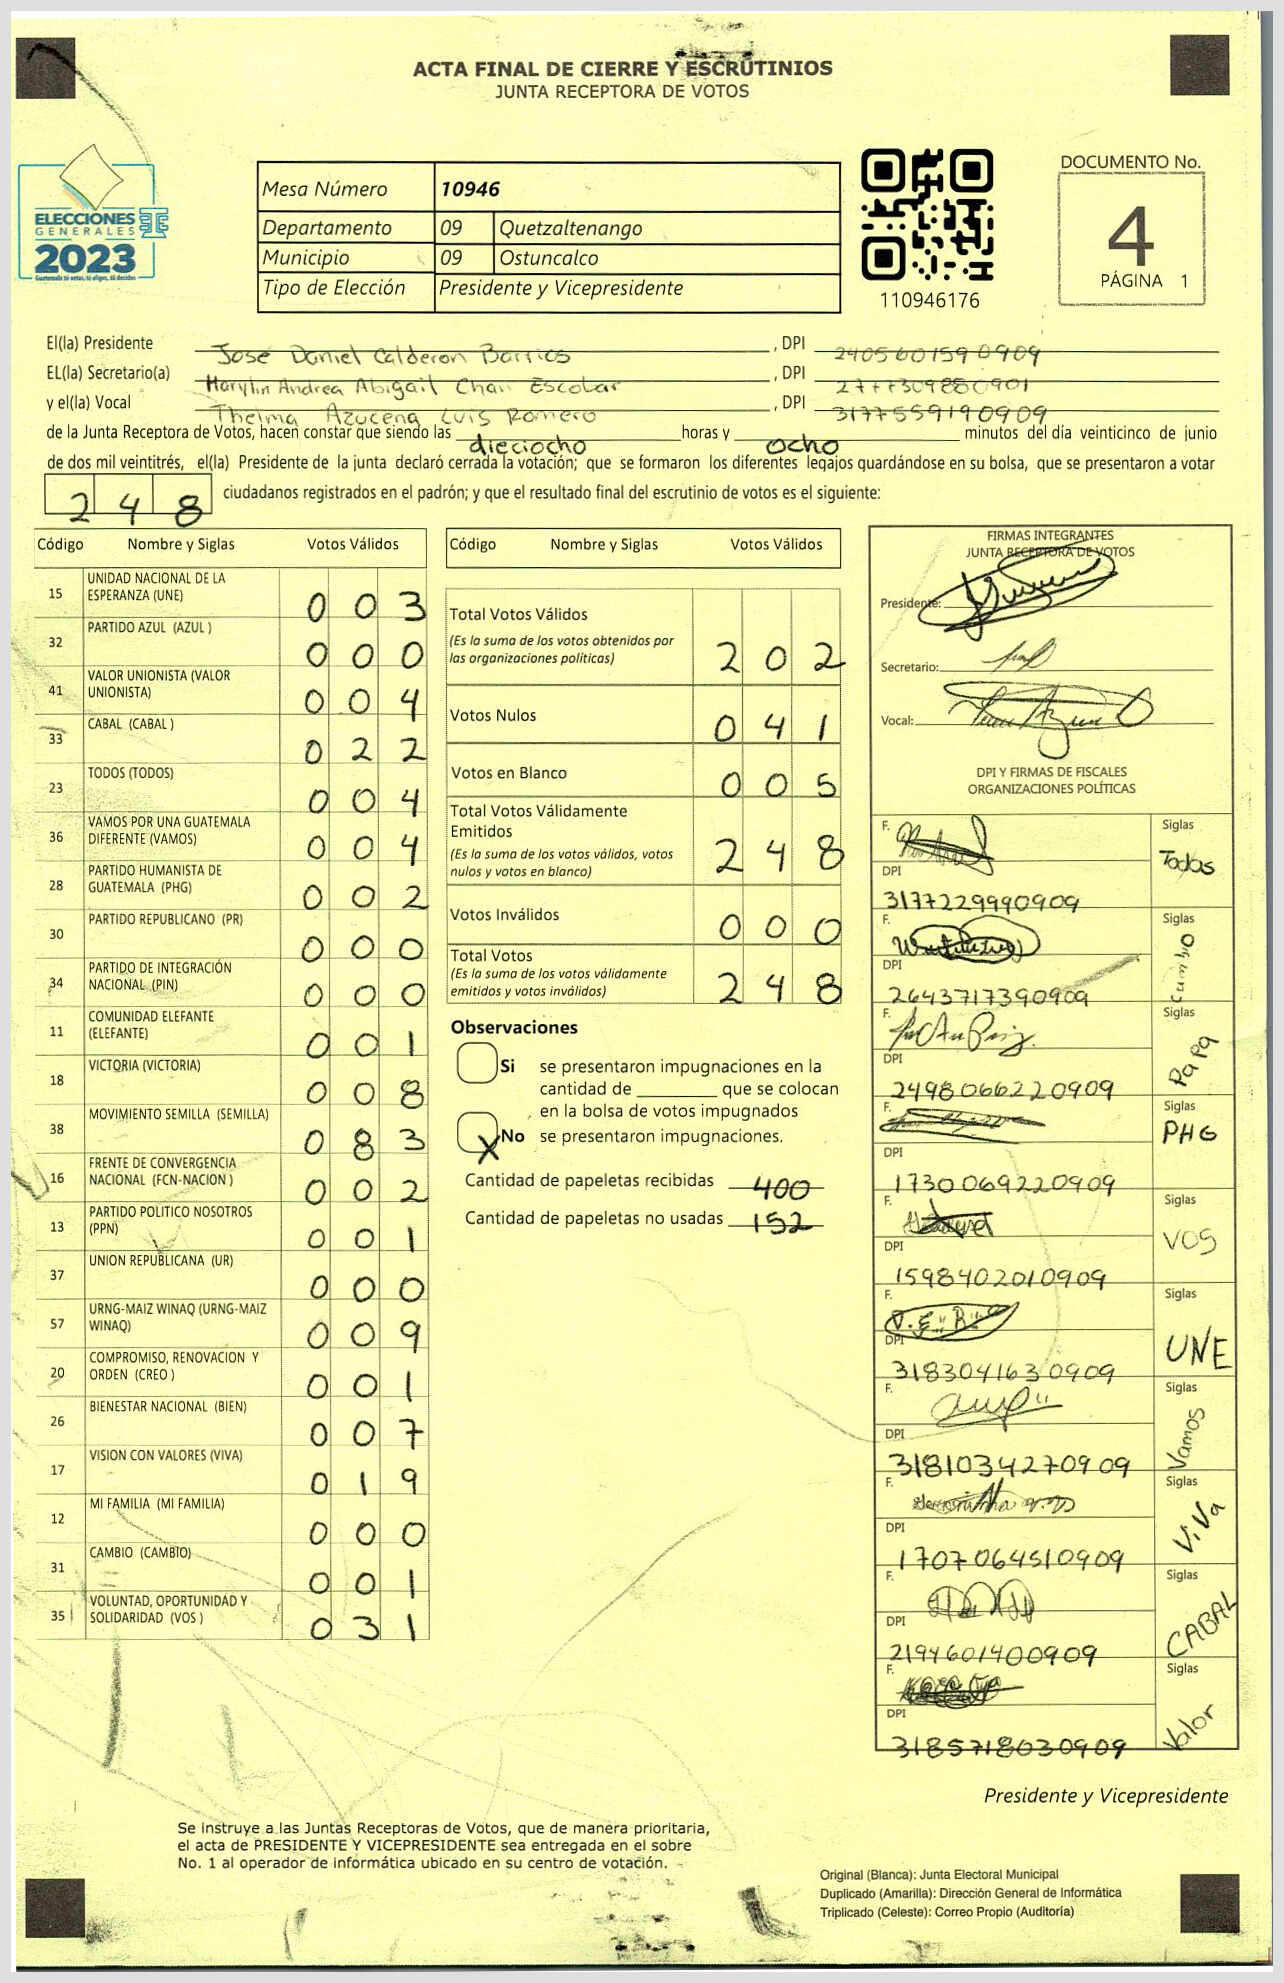 ACTA FINAL DE CIERRE Y ESCRUTINIOS
JUNTA RECEPTORA DE VOTOS
ELECCIONES
GENERALES
2023
Mesa Número 10946
Departamento 09 Quetzaltenango
Municipio 09 Ostuncalco
Tipo de Elección Presidente y Vicepresidente
110946176
DOCUMENTO No.
4
PÁGINA 1
El(la) Presidente Jose Daniel Calderon Barrios, DPI 2405601590909
EL(la) Secretario(a) Marylin Andrea Abigail Chan Escobar, DPI 2777309880901
y el(la) Vocal Thelma Azucena Luis Romero, DPI 3177559190909
de la Junta Receptora de Votos, hacen constar que siendo las dieciocho horas y ocho minutos del día veinticinco de junio
de dos mil veintitrés, el(la) Presidente de la junta declaró cerrada la votación; que se formaron los diferentes legajos guardándose en su bolsa, que se presentaron a votar
248 ciudadanos registrados en el padrón; y que el resultado final del escrutinio de votos es el siguiente:
Código Nombre y Siglas Votos Válidos
15 UNIDAD NACIONAL DE LA ESPERANZA (UNE) 0 0 3
32 PARTIDO AZUL (AZUL ) 0 0 0
41 VALOR UNIONISTA (VALOR UNIONISTA) 0 0 4
33 CABAL (CABAL ) 0 2 2
23 TODOS (TODOS) 0 0 4
36 VAMOS POR UNA GUATEMALA DIFERENTE (VAMOS) 0 0 4
28 PARTIDO HUMANISTA DE GUATEMALA (PHG) 0 0 2
30 PARTIDO REPUBLICANO (PR) 0 0 0
34 PARTIDO DE INTEGRACIÓN NACIONAL (PIN) 0 0 0
11 COMUNIDAD ELEFANTE (ELEFANTE) 0 0 1
18 VICTORIA (VICTORIA) 0 0 8
38 MOVIMIENTO SEMILLA (SEMILLA) 0 8 3
16 FRENTE DE CONVERGENCIA NACIONAL (FCN-NACION ) 0 0 2
13 PARTIDO POLITICO NOSOTROS (PPN) 0 0 1
37 UNION REPUBLICANA (UR) 0 0 0
57 URNG-MAIZ WINAQ (URNG-MAIZ WINAQ) 0 0 9
20 COMPROMISO, RENOVACION Y ORDEN (CREO ) 0 0 1
26 BIENESTAR NACIONAL (BIEN) 0 0 7
17 VISION CON VALORES (VIVA) 0 1 9
12 MI FAMILIA (MI FAMILIA) 0 0 0
31 CAMBIO (CAMBIO) 0 0 1
35 VOLUNTAD, OPORTUNIDAD Y SOLIDARIDAD (VOS ) 0 3 1
Código Nombre y Siglas Votos Válidos
Total Votos Válidos 2 0 2
(Es la suma de los votos obtenidos por
las organizaciones políticas)
Votos Nulos 0 4 1
Votos en Blanco 0 0 5
Total Votos Válidamente
Emitidos 2 4 8
(Es la suma de los votos válidos, votos
nulos y votos en blanco)
Votos Inválidos 0 0 0
Total Votos 2 4 8
(Es la suma de los votos válidamente
emitidos y votos inválidos)
Observaciones
Si se presentaron impugnaciones en la
cantidad de ________ que se colocan
en la bolsa de votos impugnados
X No se presentaron impugnaciones.
Cantidad de papeletas recibidas 400
Cantidad de papeletas no usadas 152
FIRMAS INTEGRANTES
JUNTA RECEPTORA DE VOTOS
Presidente:
Secretario:
Vocal:
DPI Y FIRMAS DE FISCALES
ORGANIZACIONES POLÍTICAS
F. Siglas Todos
DPI 3177229990909
F. Siglas
DPI 2643717390909
F. Siglas
DPI 2498066220909
F. Siglas PHG
DPI 1730069220909
F. Siglas VOS
DPI 1598402010909
F. Siglas UNE
DPI 3183041630909
F. Siglas Vamos
DPI 3181034270909
F. Siglas ViVa
DPI 1707064510909
F. Siglas CABAL
DPI 2194601400909
F. Siglas Valor
DPI 3185718030909
Presidente y Vicepresidente
Se instruye a las Juntas Receptoras de Votos, que de manera prioritaria,
el acta de PRESIDENTE Y VICEPRESIDENTE sea entregada en el sobre
No. 1 al operador de informática ubicado en su centro de votación.
Original (Blanca): Junta Electoral Municipal
Duplicado (Amarilla): Dirección General de Informática
Triplicado (Celeste): Correo Propio (Auditoría)